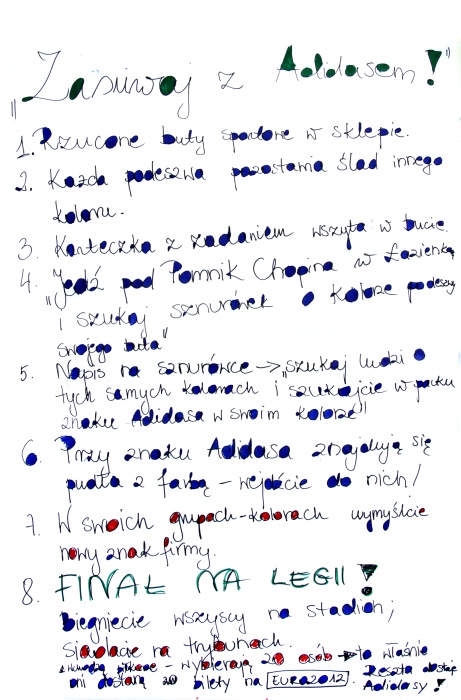 "Zasuwaj z Adidasem!"
1. Rzucone buty sportowe w sklepie.
2. Każda podeszwa pozostawia ślad innego
koloru.
3. Karteczka z zadaniem wszyta w bucie.
4. "Jedź pod Pomnik Chopina w Łazienka
i szukaj sznurówek o kolorze podeszwy
swojego buta"
5. Napis na sznurówce → „szukaj ludzi o
tych samych kolorach i szukajcie w parku
znaku Adidasa w swoim kolorze"
6. Przy znaku Adidasa znajdują się
pudła z farbą - wejdźcie do nich!
7. W swoich grupach-kolorach wymyślcie
nowy znak firmy.
8. FINAŁ NA LEGII!
biegniecie wszyscy na stadion;
siadacie na trybunach.
- wybierają 20 osób → to właśnie
oni dostaną 20 bilety na EURO2012. Reszta dostaje
Adidasy!